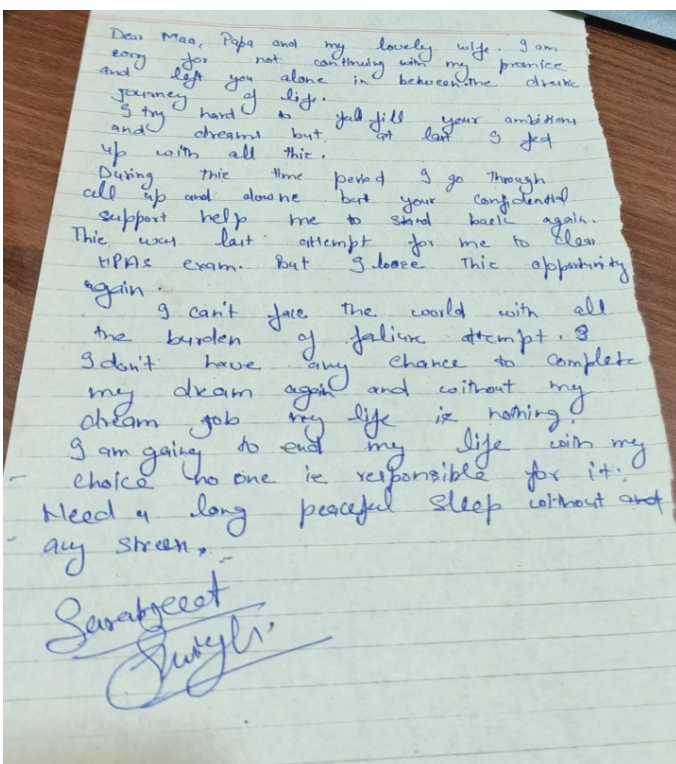 Dear Maa, Papa and my lovely wife. I am
sory for not continuing with my promice
and left you alone in between the
journey of life.
I try hard to full fill your ambitions
and dreams but at last I fed
up with all this.
During this time period I go through
all up and downe but your confidential
support help me to stand back again.
This way last attempt for me to clear
HPAS exam. But I loose this opportunity
again.
I can't face the world with all
the burden of faliure attempt. I
I don't have any chance to complete
my dream again and without my
dream job my life is nothing.
I am going to end my life with my
choice no one is responsible for it.
Need a long peaceful sleep without and
any
Sarabjeet